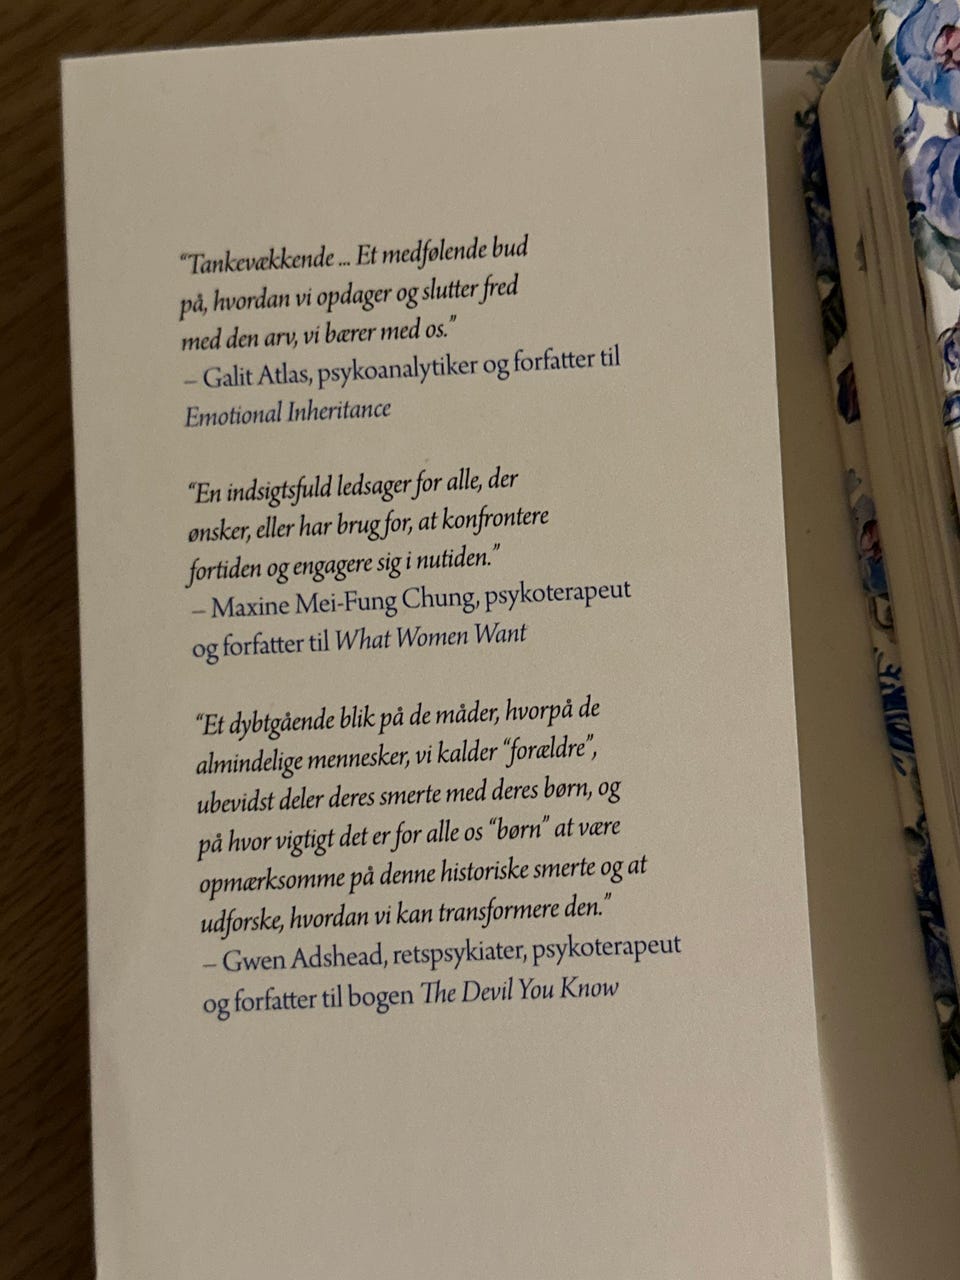 “Tankevækkende ... Et medfølende bud
på, hvordan vi opdager og slutter fred
med den arv, vi bærer med os.”
– Galit Atlas, psykoanalytiker og forfatter til
Emotional Inheritance
“En indsigtsfuld ledsager for alle, der
ønsker, eller har brug for, at konfrontere
fortiden og engagere sig i nutiden.”
– Maxine Mei-Fung Chung, psykoterapeut
og forfatter til What Women Want
“Et dybtgående blik på de måder, hvorpå de
almindelige mennesker, vi kalder “forældre”,
ubevidst deler deres smerte med deres børn, og
på hvor vigtigt det er for alle os “børn” at være
opmærksomme på denne historiske smerte og at
udforske, hvordan vi kan transformere den.”
– Gwen Adshead, retspsykiater, psykoterapeut
og forfatter til bogen The Devil You Know